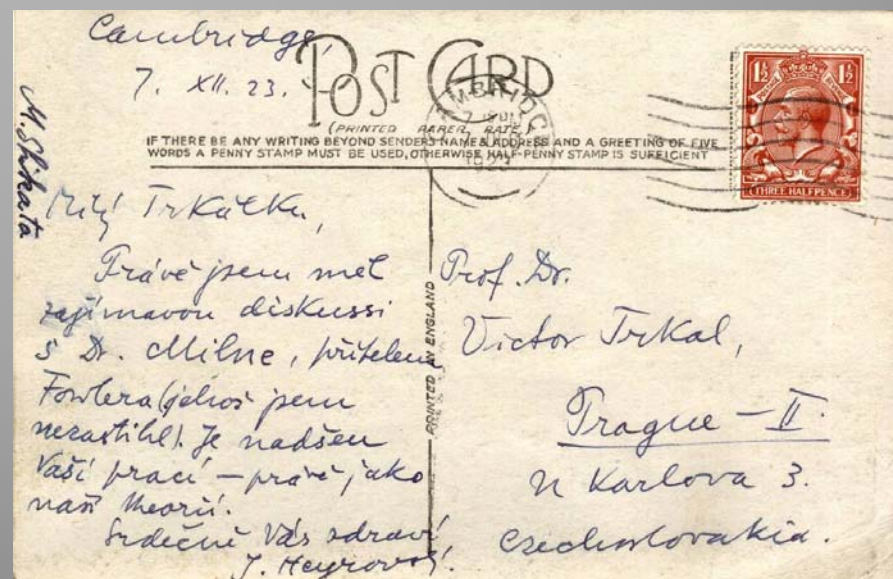 Cambridge,
7. XII. 23.
POST CARD
(PRINTED PAPER RATE)
IF THERE BE ANY WRITING BEYOND SENDERS NAME & ADDRESS AND A GREETING OF FIVE
WORDS A PENNY STAMP MUST BE USED, OTHERWISE HALF-PENNY STAMP IS SUFFICIENT
CAMBRIDGE
1½ 1½
POSTAGE REVENUE
THREE HALFPENCE
M. Shikata
Milý Trkálku,
Právě jsem měl
zajímavou diskussi
s Dr. Milne, přítelem
Fowlera (jehož jsem
nezastihl). Je nadšen
Vaší prací – právě jako
naší theorií.
Srdečně Vás zdraví
J. Heyrovský.
PRINTED BY ENGLAND
Prof. Dr.
Victor Trkal,
Prague – II.
u Karlova 3.
Czechoslovakia.